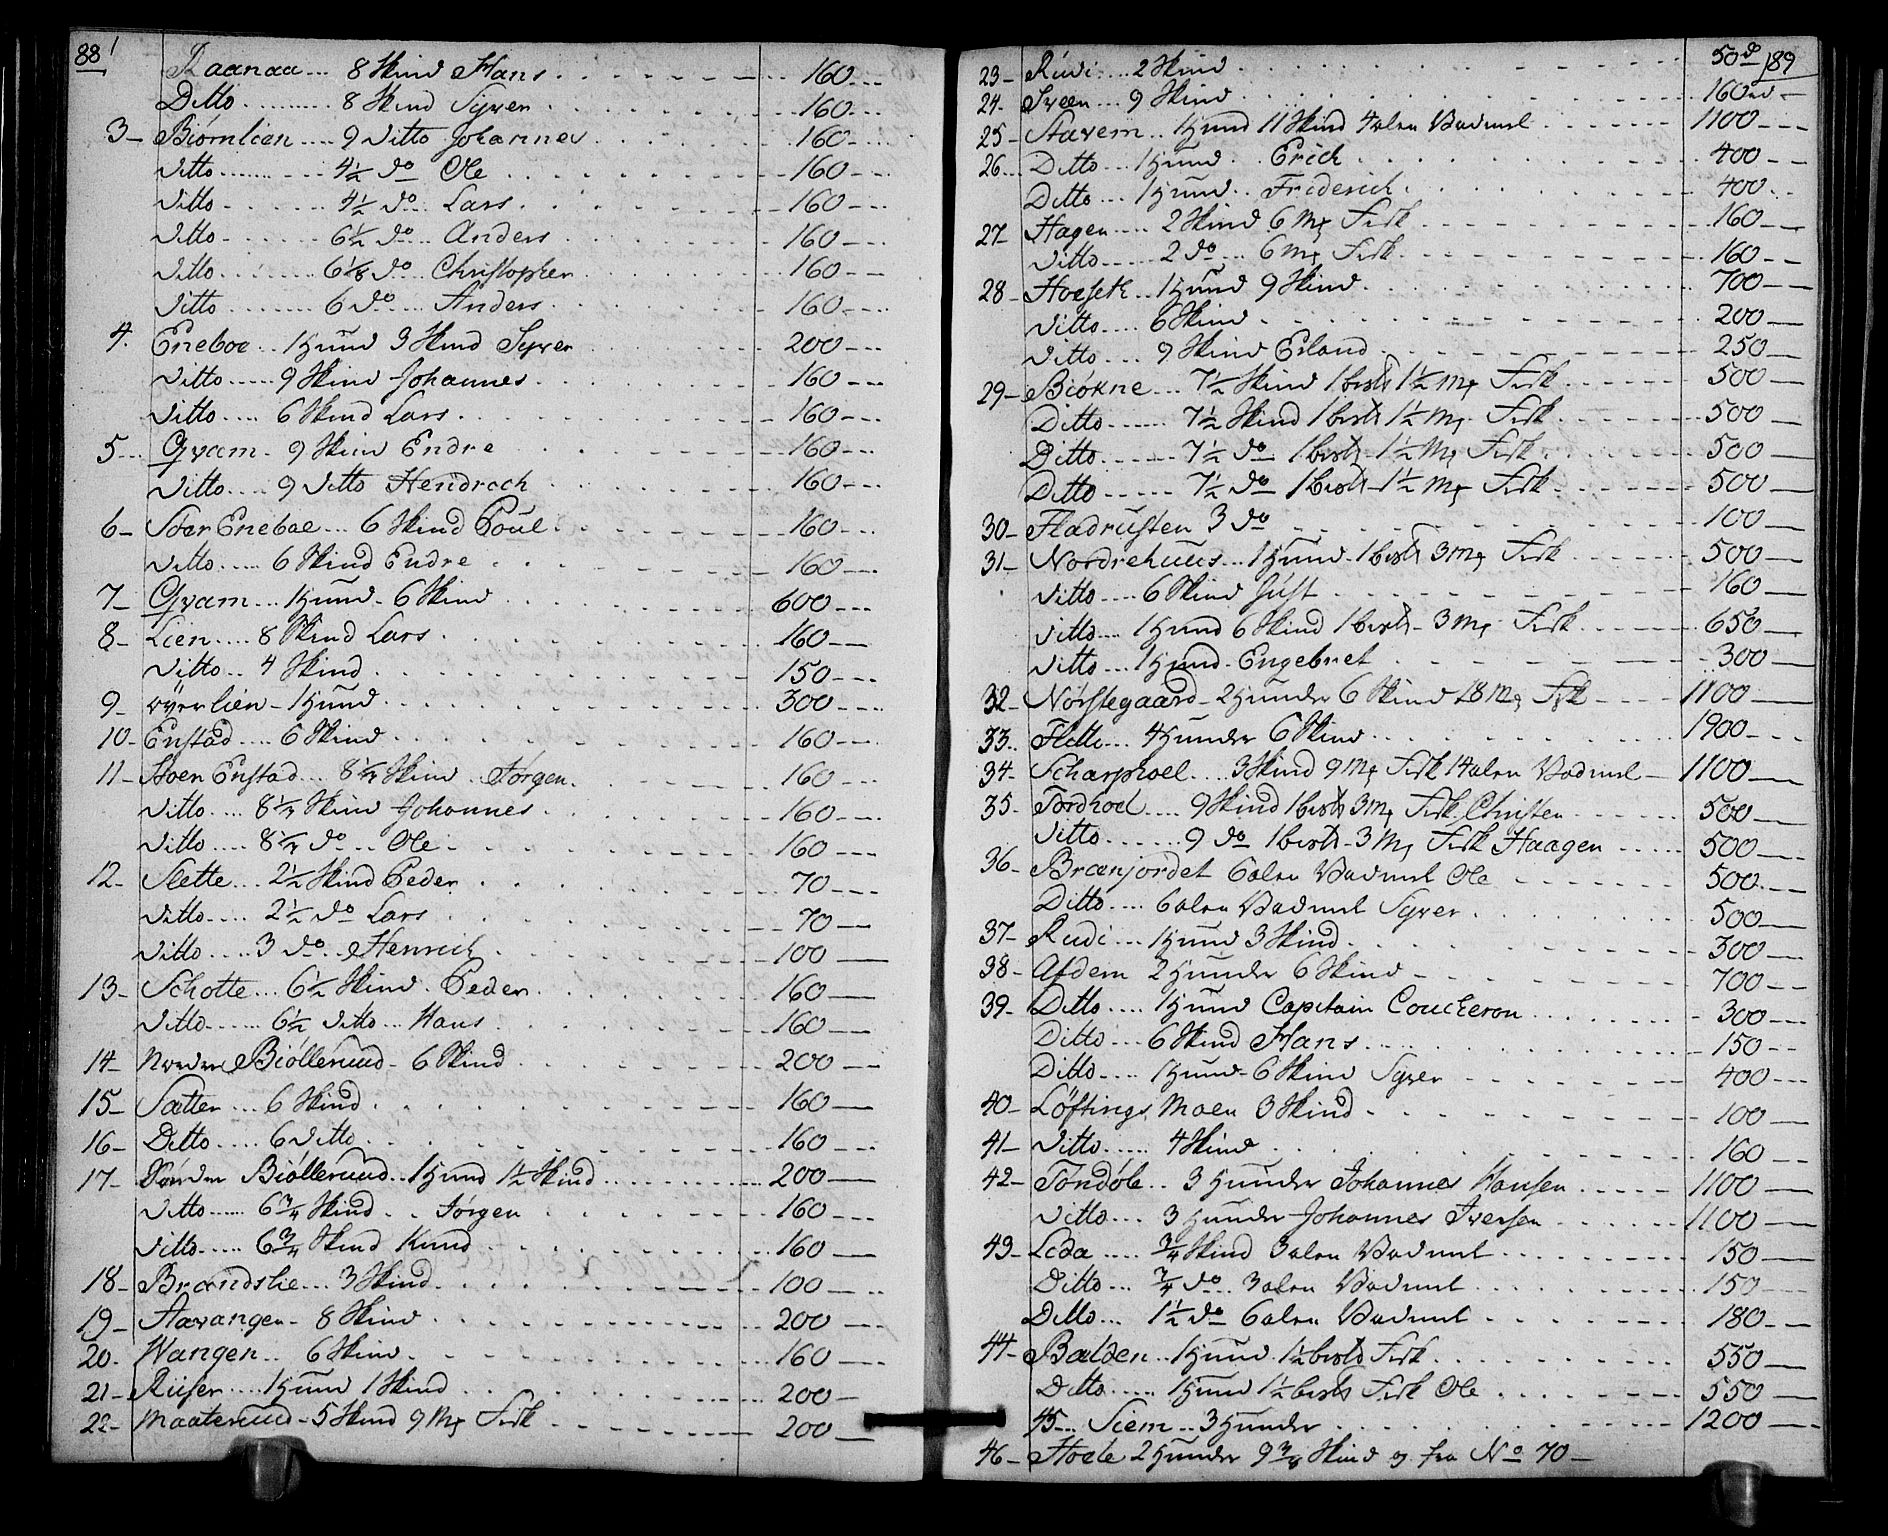 88
Raanaa ... 8 Skind Hans ... 160
Ditto ... 8 Skind Syver ... 160
3 - Biørnlien ... 9 Ditto Johannes ... 160
Ditto ... 4½ do Ole ... 160
Ditto ... 4½ do Lars ... 160
Ditto ... 6½ do Anders ... 160
Ditto ... 6⅛ do Christopher ... 160
Ditto ... 6 do Anders ... 160
4. Eneboe ... 1 Hund 3 Skind Syver ... 200
Ditto ... 9 Skind Johannes ... 160
Ditto ... 6 Skind Lars ... 160
5 ... Qvam - 9 Skind Endre ... 160
Ditto ... 9 Ditto Hendrech ... 160
6 - Stor Eneboe ... 6 Skind Poul ... 160
Ditto ... 6 Skind Endre ... 160
7 - Qvam ... 1 Hund - 6 Skind ... 600
8 - Lien ... 8 Skind Lars ... 160
Ditto .. 4 Skind ... 150
9 - øverlien - 1 Hund ... 300
10 - Enstad ... 6 Skind ... 160
11 - Stoer Enstad ... 8¼ Skind . Jørgen ... 160
Ditto ... 8¼ Skind Johannes ... 160
Ditto ... 8¼ do ... Ole ... 160
12 - Slette ... 2½ Skind Peder ... 70
Ditto ... 2½ do Lars ... 70
Ditto ... 3 do .. Henrich ... 100
13 - Schotte ... 6½ Skind . Peder ... 160
Ditto ... 6½ Ditto ... Hans ... 160
14 - Nordre Biøllerud - 6 Skind ... 200
15 - Sætter ... 6 Skind ... 160
16 - Ditto ... 6 Ditto ... 160
17 - Biøllerud .. 1 Hund 1½ Skind ... 200
Ditto ... 6¾ Skind .. Jørgen ... 160
Ditto ... 6¾ Skind Knud ... 160
18 - Brændslie ... 3 Skind ... 100
19 - Stavangen - 8 Skind ... 200
20 - Wangen .. 6 Skind ... 160
21 - Riiser ... 1 Hund 1 Skind ... 200
22 - Maaterud - 5 Skind 9 Mk Fisk ... 200
89
23 - Rudi ... 2 Skind ... 50 d
24 - Sveen ... 9 Skind ... 160
25 - Stavem .. 1 Hund 11 Skind 4 alen Vadmel ... 1100
26 ... Ditto ... 1 Hund .. Erich ... 400
Ditto ... 1 Hund .. Friderich ... 400
27 - Hagen ... 2 Skind 6 Mk Fisk ... 160
Ditto ... 2 do ... 6 Mk Fisk ... 160
28 - Hoeseth ... 1 Hund 9 Skind ... 700
Ditto ... 6 Skind ... 200
Ditto ... 9 Skind Erland ... 250
29 - Biøkne ... 7½ Skind 1 bisk 1½ Mk Fisk ... 500
Ditto ... 7½ Skind 1 bisk 1½ Mk Fisk ... 500
Ditto ... 7½ do 1 bisk - 1½ Mk Fisk ... 500
Ditto ... 7½ do 1 bisk - 1½ Mk Fisk ... 500
30 - Fladrusten 3 do ... 100
31 - Nordrehuus ... 1 Hund - 1 bisk 3 Mk Fisk ... 500
Ditto ... 6 Skind Just ... 160
Ditto ... 1 Hund 6 Skind 1 bisk - 3 Mk Fisk ... 650
Ditto ... 1 Hund - Engebret ... 300
32 - Nørstegaard - 2 Hunder 6 Skind 18 Mk Fisk ... 1100
33 .. Flitte ... 4 Hunder 6 Skind ... 1900
34 - Scharphoel ... 3 Skind 9 Mk Fisk 14 alen Vadmel - 1100
35 - Tordhoel ... 9 Skind 1 bisk 3 Mk Fisk Christen ... 500
Ditto ... 9 do 1 bisk - 3 Mk Fisk Haagen ... 500
36 - Brænjordet 6 alen Vadmel Ole ... 500
Ditto ... 6 alen Vadmel Syver ... 500
37 - Rudi ... 1 Hund 3 Skind ... 300
38 - Afdem 2 Hunder 6 Skind ... 700
39 - Ditto ... 1 Hund Capitain Coucheron ... 300
Ditto ... 6 Skind Hans ... 150
Ditto ... 1 Hund - 6 Skind Syver ... 400
40 - Løftings Moen 3 Skind ... 100
41 - Ditto ... 4 Skind ... 160
42 - Tøndøle .. 3 Hunder Johannes Hansen ... 1100
Ditto ... 3 Hunder Johannes Iversen ... 1100
43 - Lida ... ¾ Skind 3 alen Vadmel ... 150
Ditto ... ¾ do ... 3 alen Vadmel ... 150
Ditto ... 1½ do 6 alen Vadmel ... 180
44 - Balden .. 1 Hund 1½ bisk Fisk ... 550
Ditto ... 1 Hund 1½ bisk Fisk Ole ... 550
45 ... Siem .. 3 Hunder ... 1200
46 - Hoele 2 Hunder 9⅜ Skind og fra No 70 -